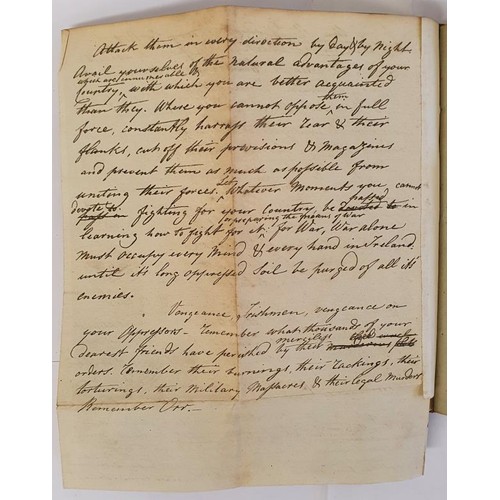 Attack them in every direction by Day & by Night
Avail yourselves of the natural advantages of your
which are innumerable &
Country, with which you are better acquainted
than they. Where you cannot oppose them in full
force, constantly harrass their rear & their
flanks, cut off their provisions & Magazines
and prevent them as much as possible from
uniting their forces. Let Whatever Moments you cannot
devote to fighting for your Country, be passed in
learning how to fight for it, or preparing the means of war
for War, War alone
must occupy every mind & every hand in Ireland
until it's long oppressed Soil be purged of all it's
enemies.
Vengeance, Irishmen, vengeance on
your Oppressors - Remember what thousands of your
dearest friends have perished by their merciless
orders. Remember their burnings, their rackings, their
torturings, their Military Massacres, & their legal Murders
Remember Orr. -